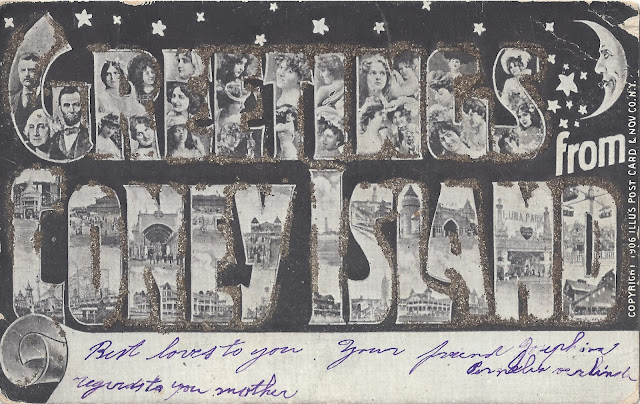 GREETINGS
from
CONEY ISLAND
LUNA PARK
COPYRIGHT 1906 ILLUS. POST CARD & NOV. CO. N.Y.
Best loves to you Your friend Josephine
regards to you mother